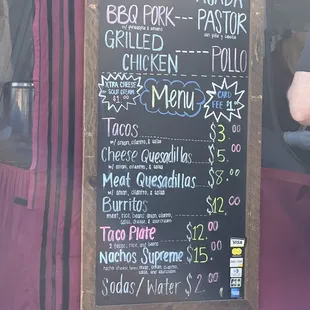 BBQ PORK --- PASTOR
w/ pineapple & onions
GRILLED
CHICKEN ----- POLLO
XTRA CHEESE
SOUR CREAM
$1.00
Menu
CARD
FEE $1
Tacos $3.00
w/ onion, cilantro, & salsa
Cheese Quesadillas $5.00
w/ onion, cilantro, & salsa
Meat Quesadillas $8.00
w/ onion, cilantro, & salsa
Burritos $12.00
meat, rice, beans, onion, cilantro,
salsa, cheese, & sourcream
Taco Plate $12.00
2 tacos, rice, and beans
Nachos Supreme $15.00
nacho cheese, beans, meat, onion, cilantro,
salsa, and sourcream
Sodas/Water $2.00
VISA